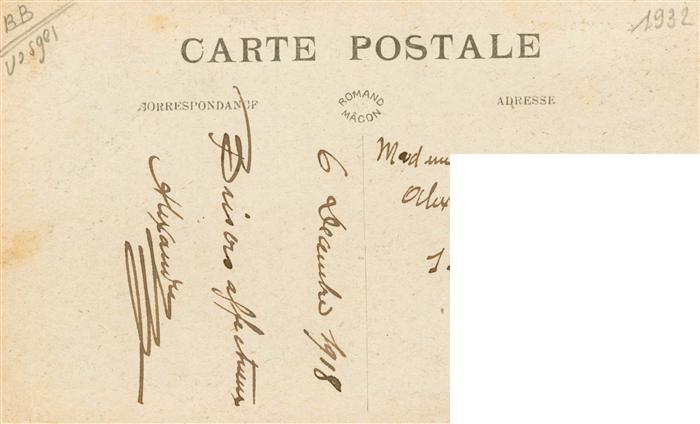 BB
Vosges
1932
CARTE POSTALE
CORRESPONDANCE
ROMAND
MÂCON
ADRESSE
6 Décembre 1918
Baisers affectueux
Alexandre